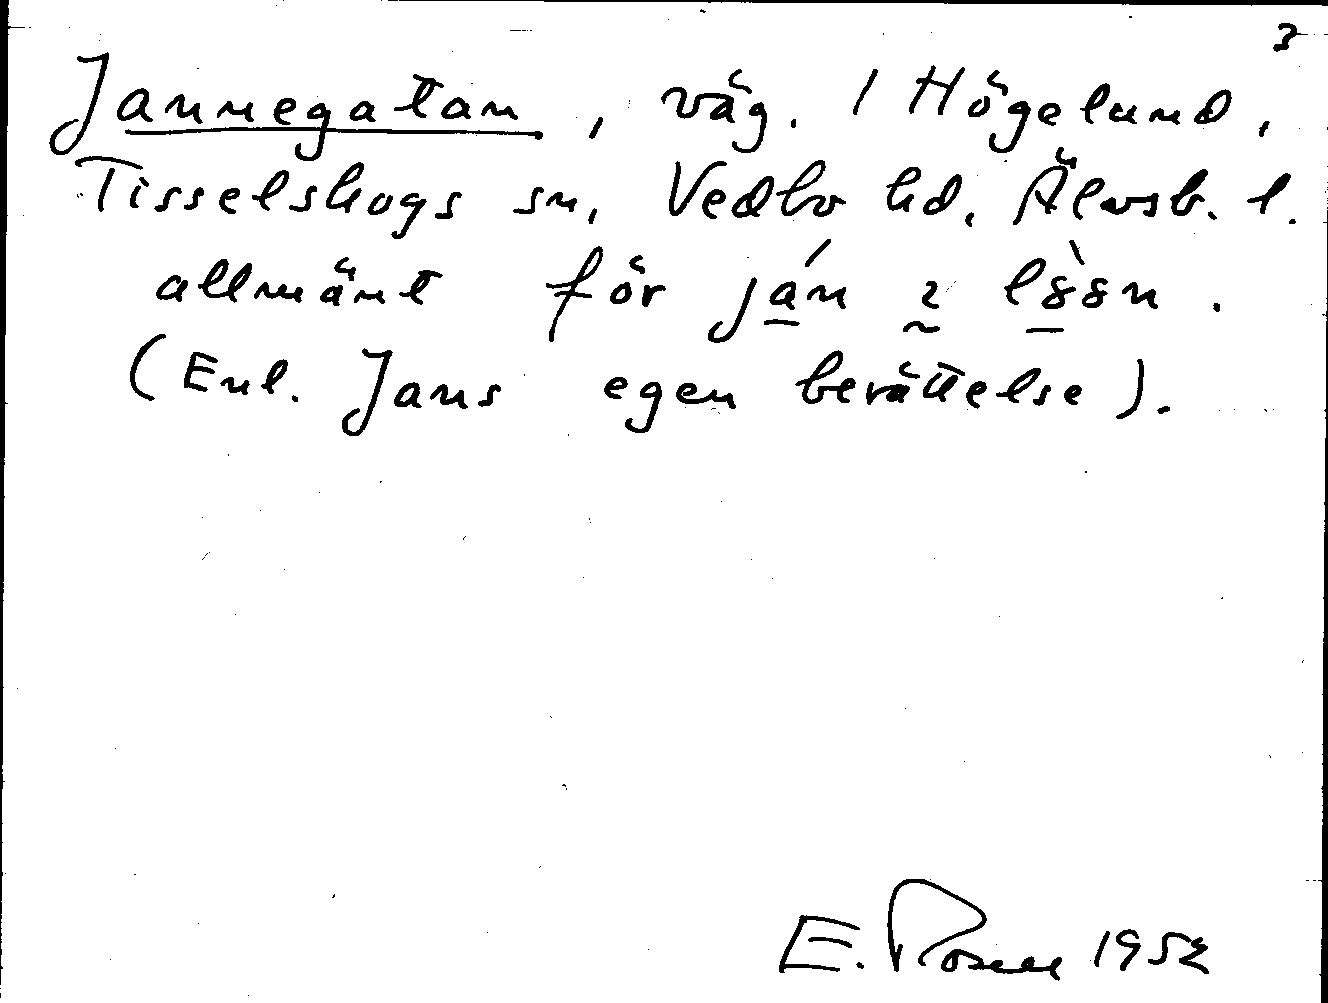 3
Jannegatan, väg. I Högelund,
Tisselskogs sn, Vedbo hd, Älvsb. l.
allmänt för ján
(Enl. Jans egen berättelse).
E. Rosell 1952